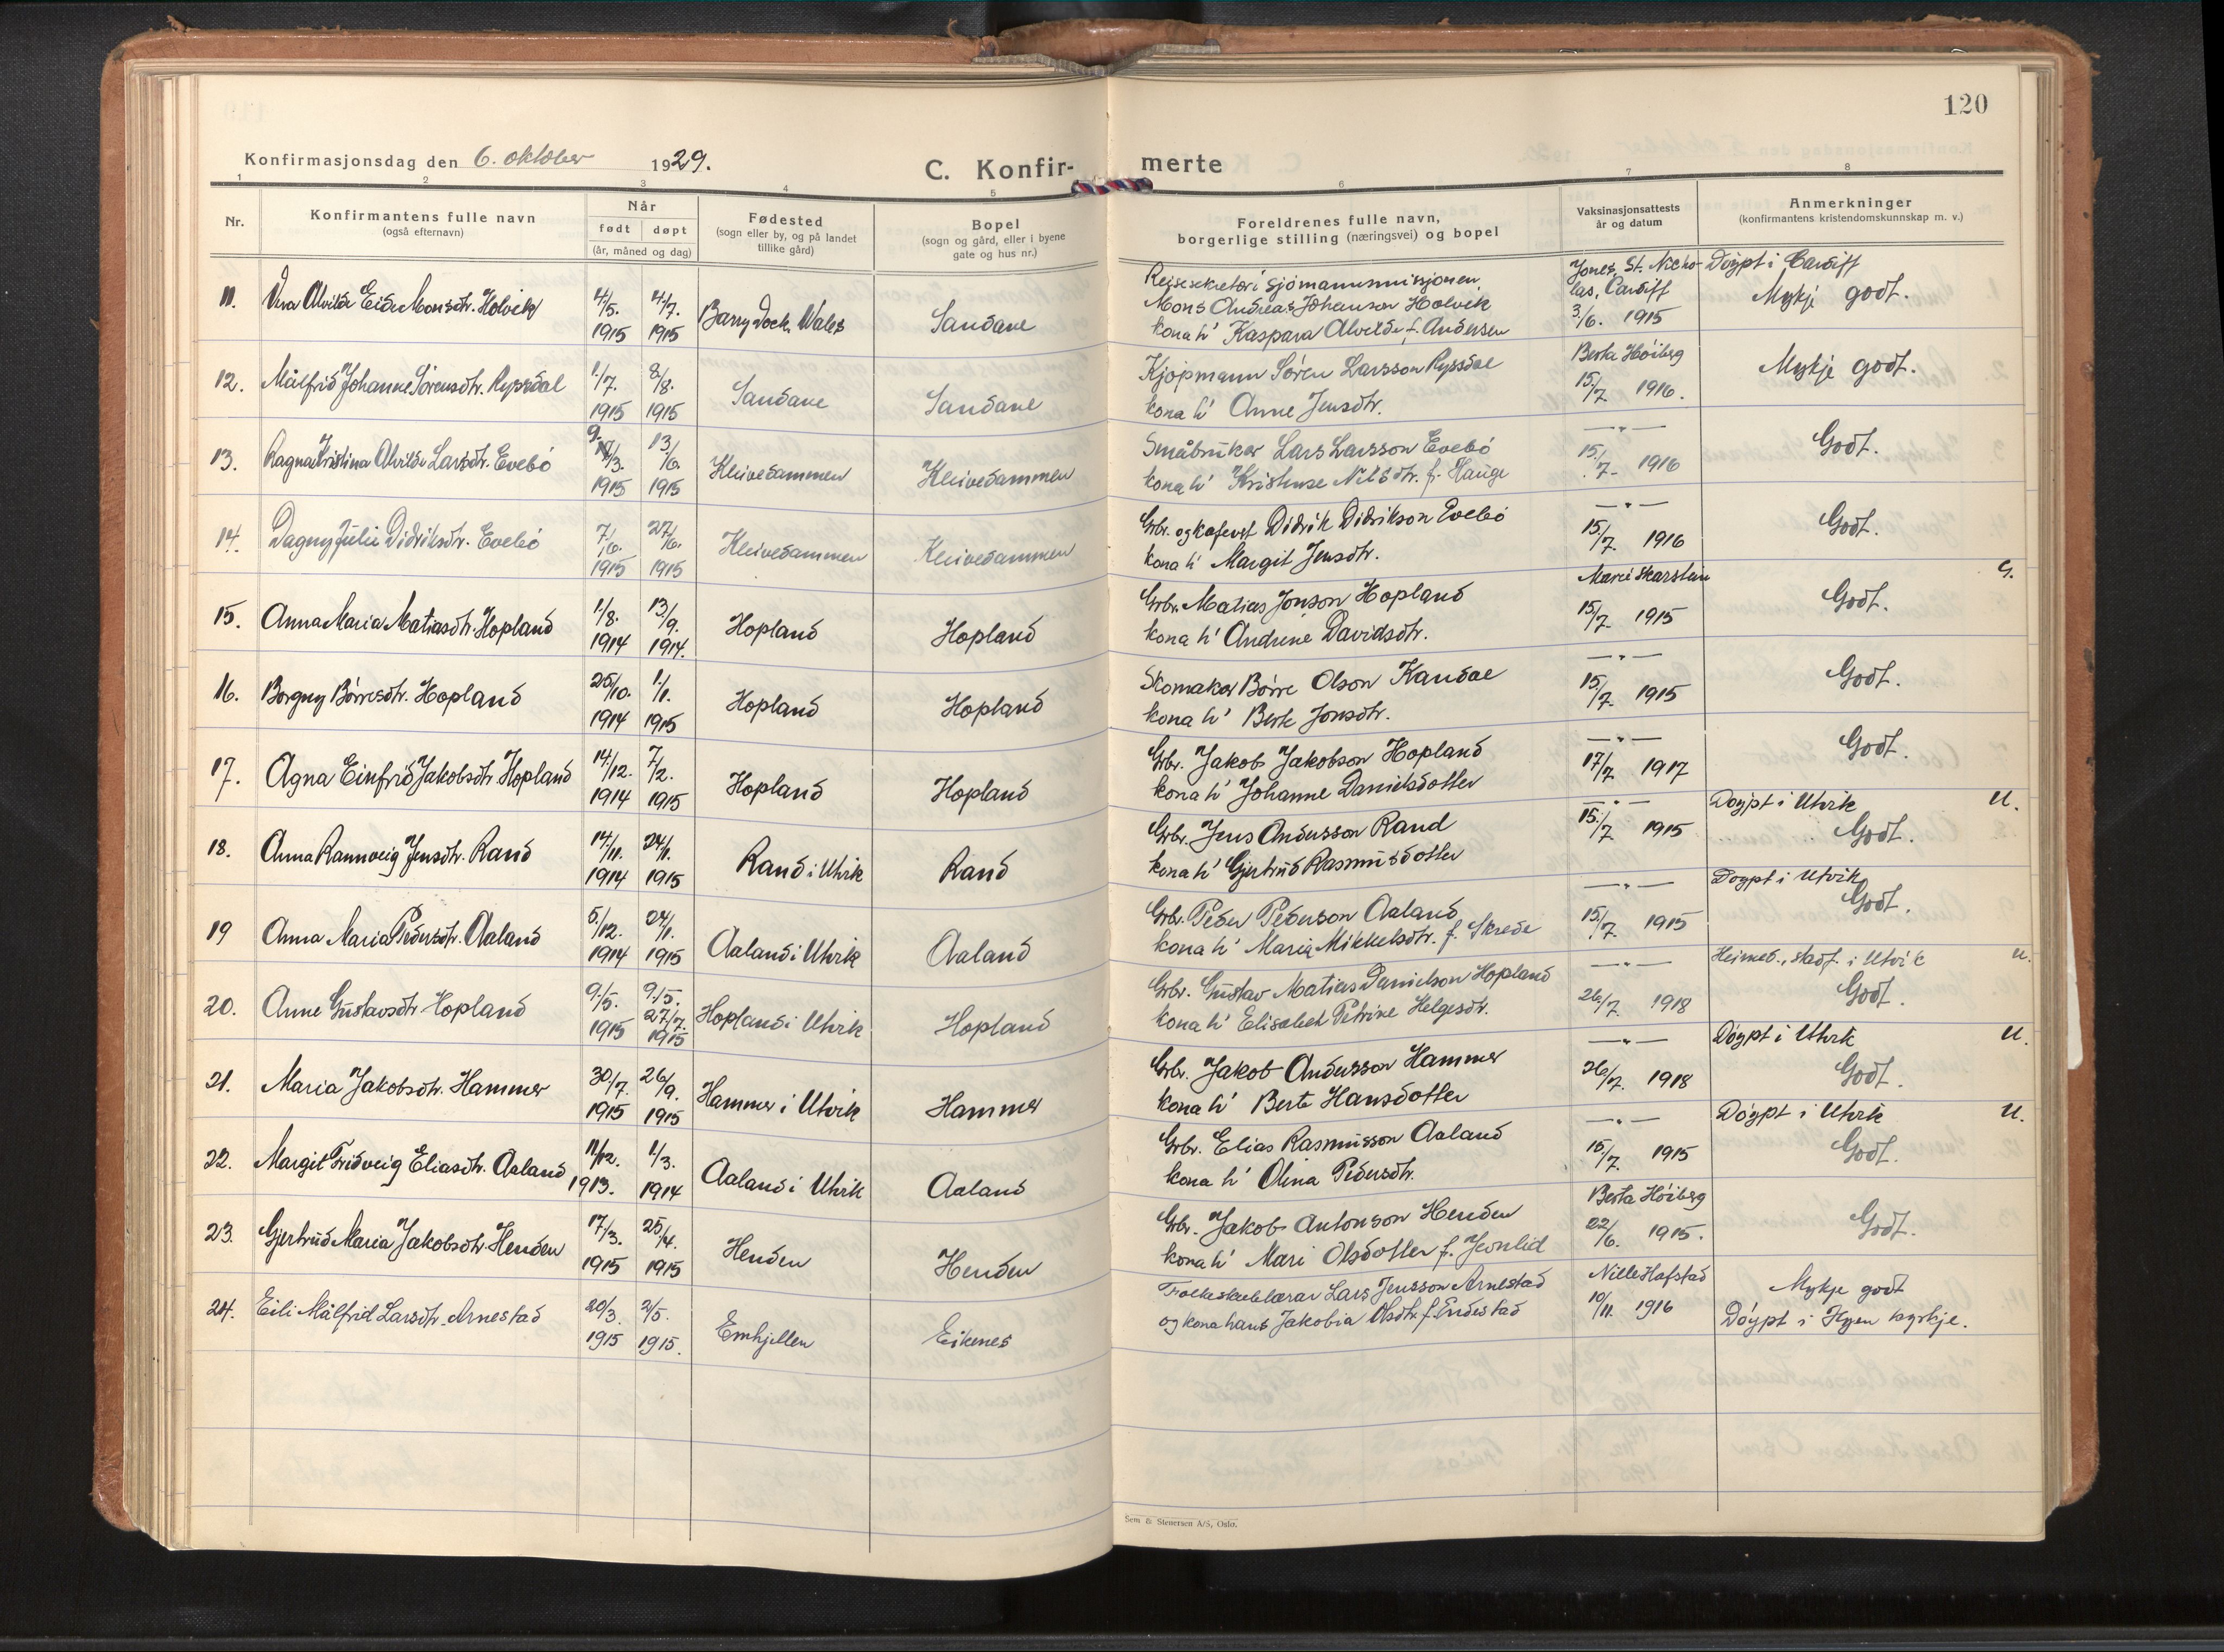 120
Konfirmasjonsdag den 6. oktober 1929.
C. Konfir-
merte
1 2 3 4 5 6 7 8
Nr.
Konfirmantens fulle navn
(også efternavn)
Når
født døpt
(år, måned og dag)
Fødested
(sogn eller by, og på landet
tillike gård)
Bopel
(sogn og gård, eller i byene
gate og hus nr.)
Foreldrenes fulle navn,
borgerlige stilling (næringsvei) og bopel
Vaksinasjonsattests
år og datum
Anmerkninger
(konfirmantens kristendomskunnskap m. v.)
11. Vera Alvilde Eide Monsdtr. Holvik
4/5. 1915
4/7. 1915
Barry Dock, Wales
Sandane
Reisesekretær i sjømannsmisjonen
Mons Andreas Johanson Holvik
kona h' Kaspara Alvilde f. Andersen
Jones, St. Nicho-
las, Cardiff
3/6. 1915
Döypt i Cardiff
Mykje godt.
12. Målfrid Johanne Sørensdtr. Ryssdal
1/7. 1915
8/8. 1915
Sandane
Sandane
Kjøpmann Søren Larsson Ryssdal
kona h' Anne Jensdtr.
Berta Høiberg
15/7. 1916.
Mykje godt.
13. Ragna Kristina Alvilde Larsdtr. Evebö
9. /3. 1915
13/6. 1915
Kleivedammen
Kleivedammen
Småbruker Lars Larsson Evebö
kona h' Kristense Nilsdtr. f. Hauge
— " —
15/7. 1916
Godt.
14. Dagny Julie Didriksdtr. Evebö
7/6. 1915
27/6. 1915
Kleivedammen
Kleivedammen
Grbr. og kafevert Didrik Didrikson Evebö
kona h' Margit Jensdtr.
— " —
15/7. 1916
Godt.
15. Anna Maria Matiasdtr. Hopland
1/8. 1914
13/9. 1914.
Hopland
Hopland
Grbr. Matias Jonson Hopland
kona h' Andrine Davidsdtr.
Marie Skarstein
15/7. 1915
Godt.
G.
16. Borgny Börresdtr. Hopland
25/10. 1914
1/1. 1915
Hopland
Hopland
Skomaker Börre Olson Kandal
kona h' Berte Jonsdtr.
— " —
15/7. 1915
Godt.
17. Agna Einfrid Jakobsdtr. Hopland
14/12. 1914
7/2. 1915
Hopland
Hopland
Grbr. Jakob Jakobson Hopland
kona h' Johanne Danielsdotter
— " —
17/7. 1917
Godt.
18. Anna Rannveig Jensdtr. Rand
14/11. 1914
24/1. 1915
Rand i Utvik
Rand
Grbr. Jens Andersson Rand
kona h' Gjertrud Rasmusdotter
— " —
15/7. 1915
Döypt i Utvik
U.
Godt.
19 Anna Maria Pedersdtr. Aaland
5/12. 1914
24/1. 1915
Aaland i Utvik
Aaland
Grbr. Peder Pederson Aaland
kona h' Maria Mikkelsdtr. f. Skrede
— " —
15/7. 1915
Döypt i Utvik
Godt.
20. Anne Gustavsdtr. Hopland
9/5. 1915
9/5. 27/7. 1915
Hopland i Utvik
Hopland
Grbr. Gustav Matias Danielson Hopland
kona h' Elisabet Petrine Helgesdtr.
— " —
26/7. 1918
Heimed., stadf. i Utvik
U.
Godt.
21. Maria Jakobsdtr. Hammer
30/7. 1915
26/9. 1915
Hammer i Utvik
Hammer
Grbr. Jakob Andersson Hammer
kona h' Berte Hansdotter
— " —
26/7. 1918
Döypt i Utvik
U.
Godt.
22. Margit Fridveig Eliasdtr. Aaland
11/12. 1913.
1/3. 1914
Aaland i Utvik
Aaland
Grbr. Elias Rasmusson Aaland
kona h' Olina Pedersdtr.
— " —
15/7. 1915
Döypt i Utvik
U.
Godt.
23. Gjertrud Maria Jakobsdtr. Henden
17/3. 1915
25/4. 1915
Henden
Henden
Grbr. Jakob Antonson Henden
kona h' Mari Olsdotter f. Jevnlid
Berta Höiberg
22/6. 1915.
Godt.
24. Eili Målfrid Larsdtr. Arnestad
20/3. 1915
2/5. 1915.
Emhjellen
Eikenes
Folkeskulelærar Lars Jensson Arnestad
og kona hans Jakobia Olsdtr. f. Endestad
Nille Hafstad
10/11. 1916
Mykje godt
Döypt i Hyen kyrkje.
Sem & Stenersen A/S, Oslo.